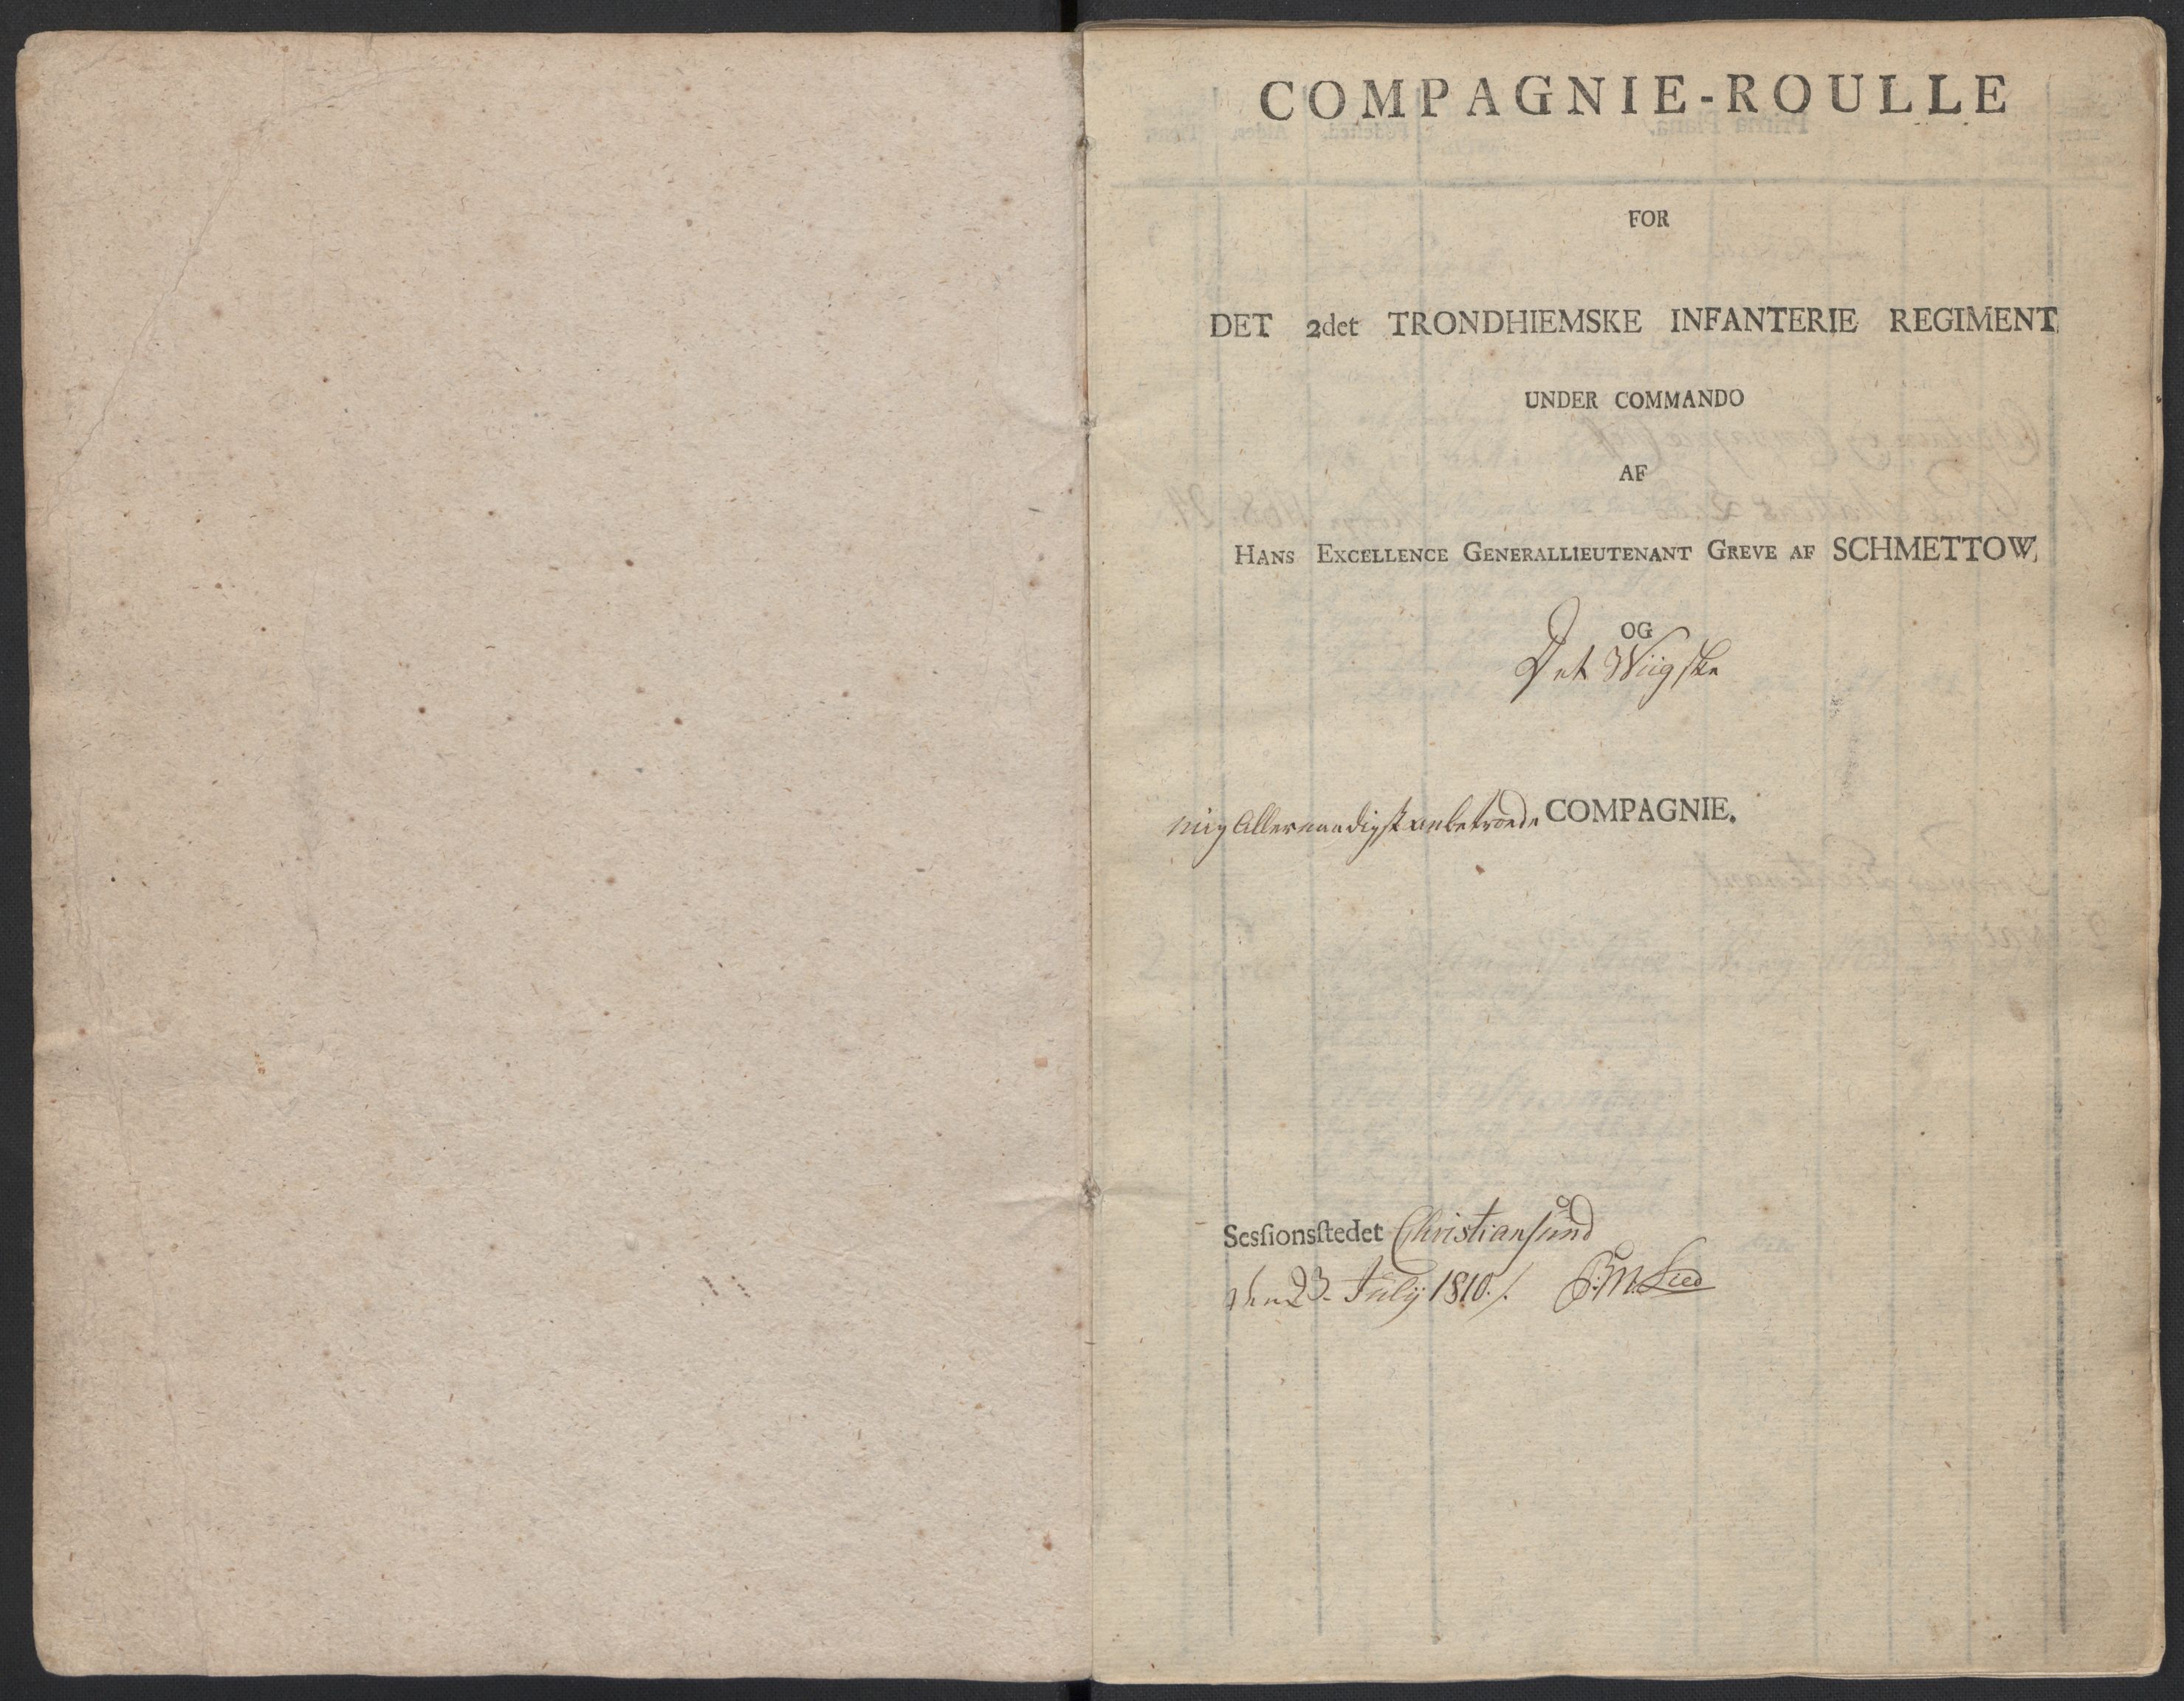 COMPAGNIE-ROULLE
FOR
DET 2det TRONDHIEMSKE INFANTERIE REGIMENT
UNDER COMMANDO
AF
HANS EXCELLENCE GENERALLIEUTENANT GREVE AF SCHMETTOW,
OG
Det Wiigske
mig Allernaadigst anbetroede COMPAGNIE.
Sesſionsſtedet Christiansund
den 23. Julÿ 1810./. P: M. Lied